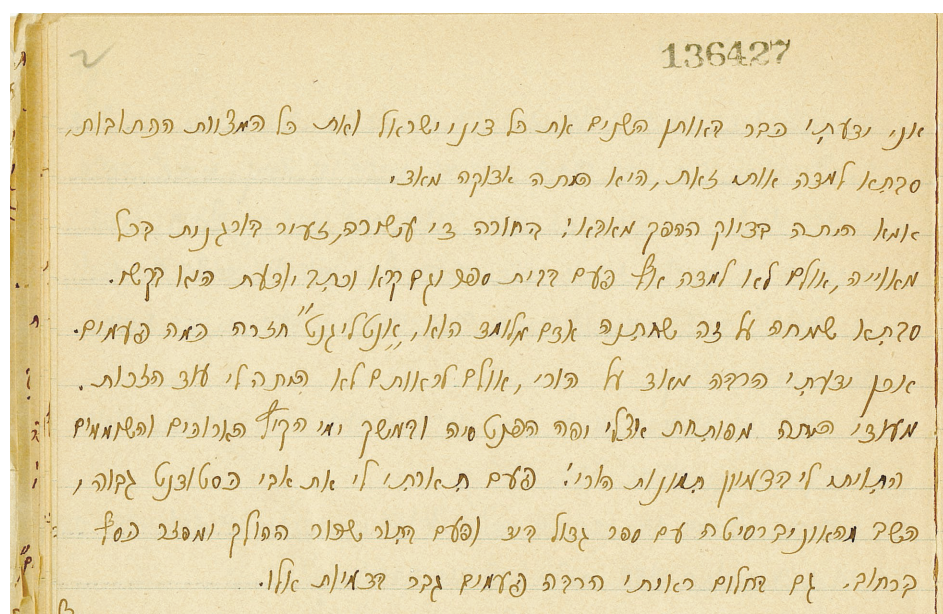 136427
אני ידעתי כבר באותן השנים את כל דיני ישראל ואת כל המצוות הכתובות,
סבתא למדה אותי זאת, היא היתה אדוקה מאד
אמא היתה בדיוק ההפך מאבא: בחורה די עשירה, צעיר בורגנית בכל
מאוייה, אולם לא למדה אף פעם בבית ספר וגם קרא וכתב יודעת היא בקשי.
סבתא שמחה על זה שחתנה אדם מלומד הוא, "אנטליגנט" חזרה כמה פעמים.
אכן ידעתי הרבה מאד על הורי, אולם לראותם לא היתה לי עוד הזכות.
מעודי היתה מפותחת אצלי יפה הפנטסיה ובמשך ימי הקיץ הארוכים והשוממים
הרביתי לי בדמיון תמונות הורי: פעם תארתי לי את אבי כסטודנט גבוה,
השב מהאוניברסיטה עם ספר גדול ביד ופעם בתור שכור ההולך ומפזר כסף
ברחוב. גם בחלום ראיתי הרבה פעמים גבר בדמיות אלו.